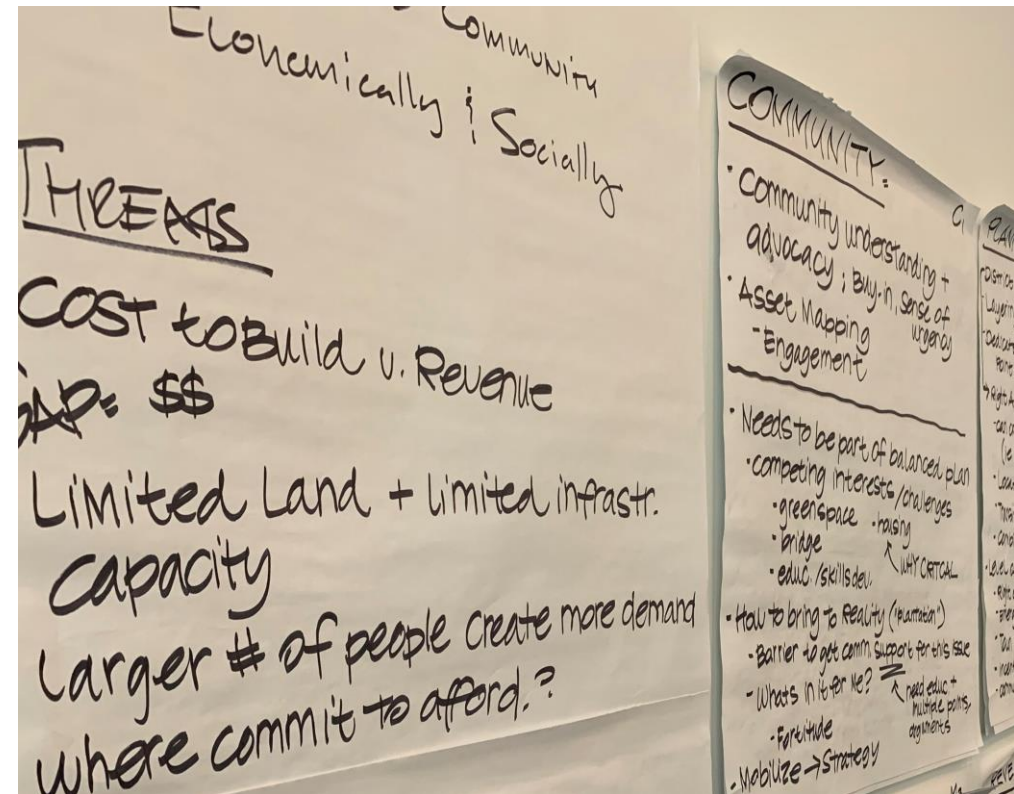 Community
Economically & Socially
THREATS
COST to Build v. Revenue
GAP: $$
Limited Land + limited infrastr.
capacity
Larger # of people create more demand
where commit to afford.?
COMMUNITY:
• Community understanding +
advocacy; Buy-in, sense of
urgency
• Asset Mapping
- Engagement
• Needs to be part of balanced plan
• competing interests/challenges
• greenspace • housing
• bridge
WHY CRITICAL
• educ./skills dev.
• How to bring to Reality ("plantation")
- Barrier to get comm. support for this issue
- Whats in it for Me?
need educ +
multiple points,
arguments
• Fortitude
• Mobilize → Strategy